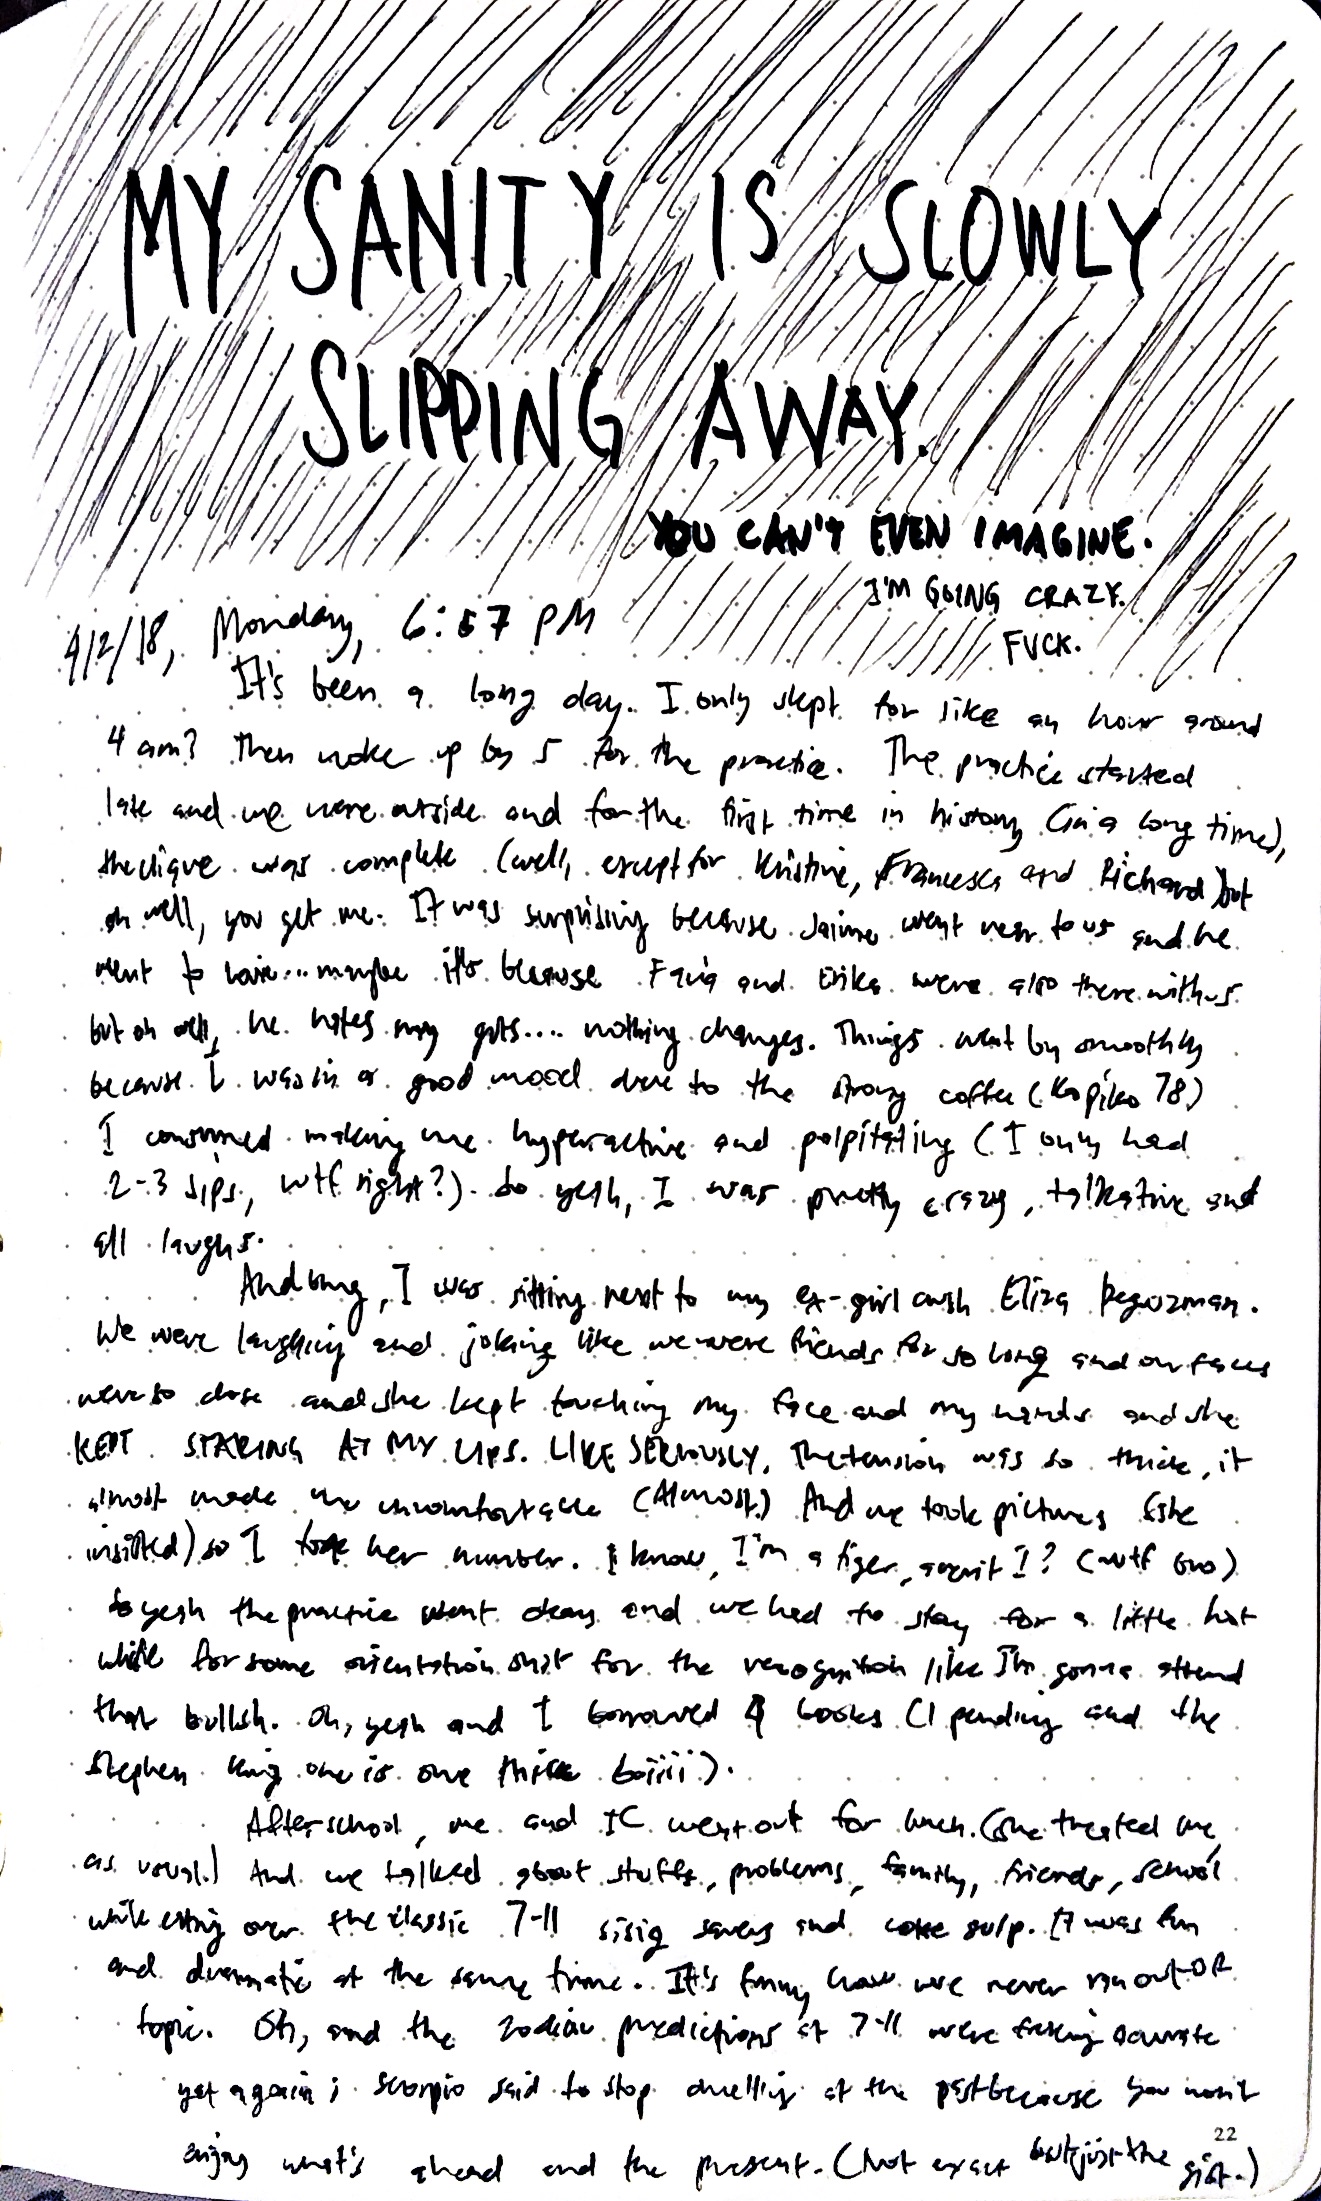 MY SANITY IS SLOWLY
SLIPPING AWAY.
YOU CAN'T EVEN IMAGINE.
I'M GOING CRAZY.
FUCK.
4/2/18, Monday, 6:57 PM
It's been a long day. I only slept for like an hour around
4 am? Then woke up by 5 for the practice. The practice started
late and we were outside and for the first time in history (in a long time),
the clique was complete (well, except for Kristine, Francesca and Richard) but
oh well, you get me. It was surprising because Jaime went near to us and he
went to ... maybe it's because and Erika were also there with us
but oh well, he hates my guts.... nothing changes. Things went by smoothly
because I was in a good mood due to the strong coffee (Kopiko 78)
I consumed making me hyperactive and palpitating (I only had
2-3 sips, wtf right?). So yeah, I was pretty crazy, talkative and
all laughs.
And omg, I was sitting next to my ex-girl crush Eliza Deguzman.
We were laughing and joking like we were friends for so long and our faces
were so close and she kept touching my face and my hands and she
KEPT STARING AT MY LIPS. LIKE SERIOUSLY, The tension was so thick, it
almost made me uncomfortable (Almost.) And we took pictures (she
insisted) so I took her number. I know, I'm a tiger, arent I? (wtf bro)
So yeah the practice went okay and we had to stay for a little bit
while for some orientation shit for the recognition like I'm gonna attend
that bullsh. Oh, yeah and I borrowed 4 books (1 pending and the
Stephen King one is one thicc boiiii).
After school, me and IC went out for lunch. (She treated me,
as usual.) And we talked about stuffs, problems, family, friends, school
while eating over the classic 7-11 sisig savers and coke gulp. It was fun
and dramatic at the same time. It's funny how we never run out OF
topic. Oh, and the zodiac predictions at 7-11 were freaking accurate
yet again; scorpio said to stop dwelling at the past because you won't
enjoy what's ahead and the present. (Not exact but just the gist.)
22